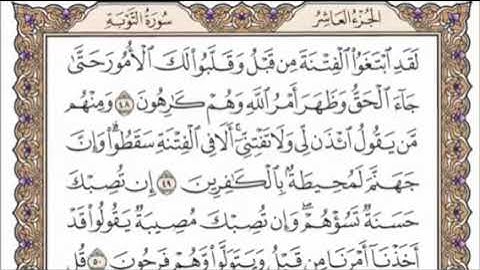 الجزء العاشر
سورة التوبة
لَقَدِ ٱبْتَغَوُا۟ ٱلْفِتْنَةَ مِن قَبْلُ وَقَلَّبُوا۟ لَكَ ٱلْأُمُورَ حَتَّىٰ
جَآءَ ٱلْحَقُّ وَظَهَرَ أَمْرُ ٱللَّهِ وَهُمْ كَٰرِهُونَ ٤٨ وَمِنْهُم
مَّن يَقُولُ ٱئْذَن لِّى وَلَا تَفْتِنِّىٓ ۚ أَلَا فِى ٱلْفِتْنَةِ سَقَطُوا۟ ۗ وَإِنَّ
جَهَنَّمَ لَمُحِيطَةٌۢ بِٱلْكَٰفِرِينَ ٤٩ إِن تُصِبْكَ
حَسَنَةٌ تَسُؤْهُمْ ۖ وَإِن تُصِبْكَ مُصِيبَةٌ يَقُولُوا۟ قَدْ
أَخَذْنَآ أَمْرَنَا مِن قَبْلُ وَيَتَوَلَّوا۟ وَّهُمْ فَرِحُونَ ٥٠ قُل